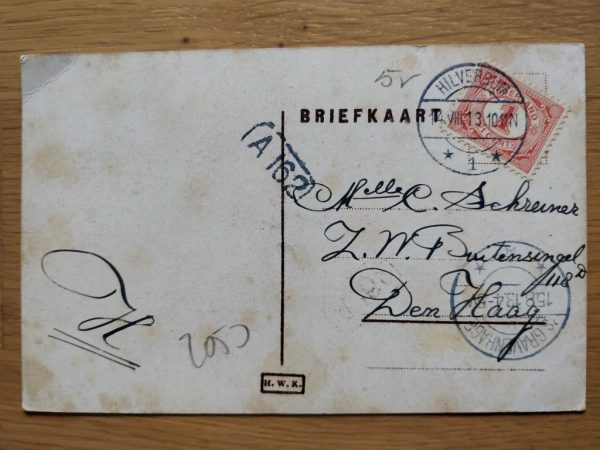 5v
HILVERSUM
14.VIII.13.10-11N
1
BRIEFKAART
NEDERLAND
A 162
Melle C. Schreiner
Z. W. Buitensingel
118D
Den Haag
'S-GRAVENHAGE
15.8.13.4-5
H
2050
H. W. K.